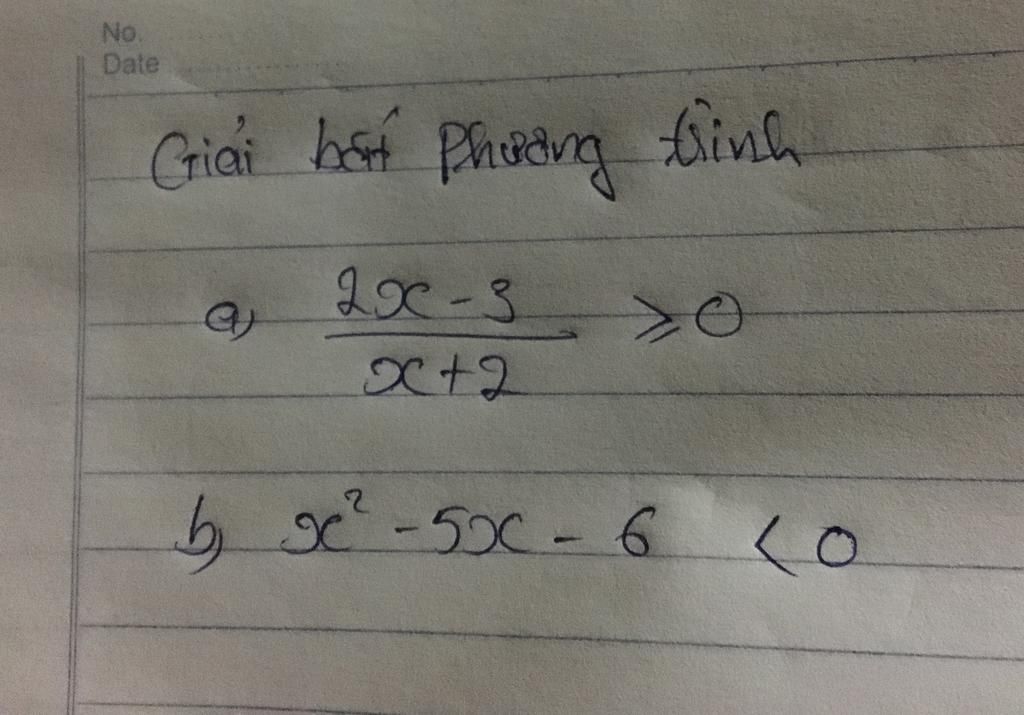 No.
Date
Giải bất phương trình
a) \frac{2x-3}{x+2} ⩾ 0
b) x² - 5x - 6 < 0